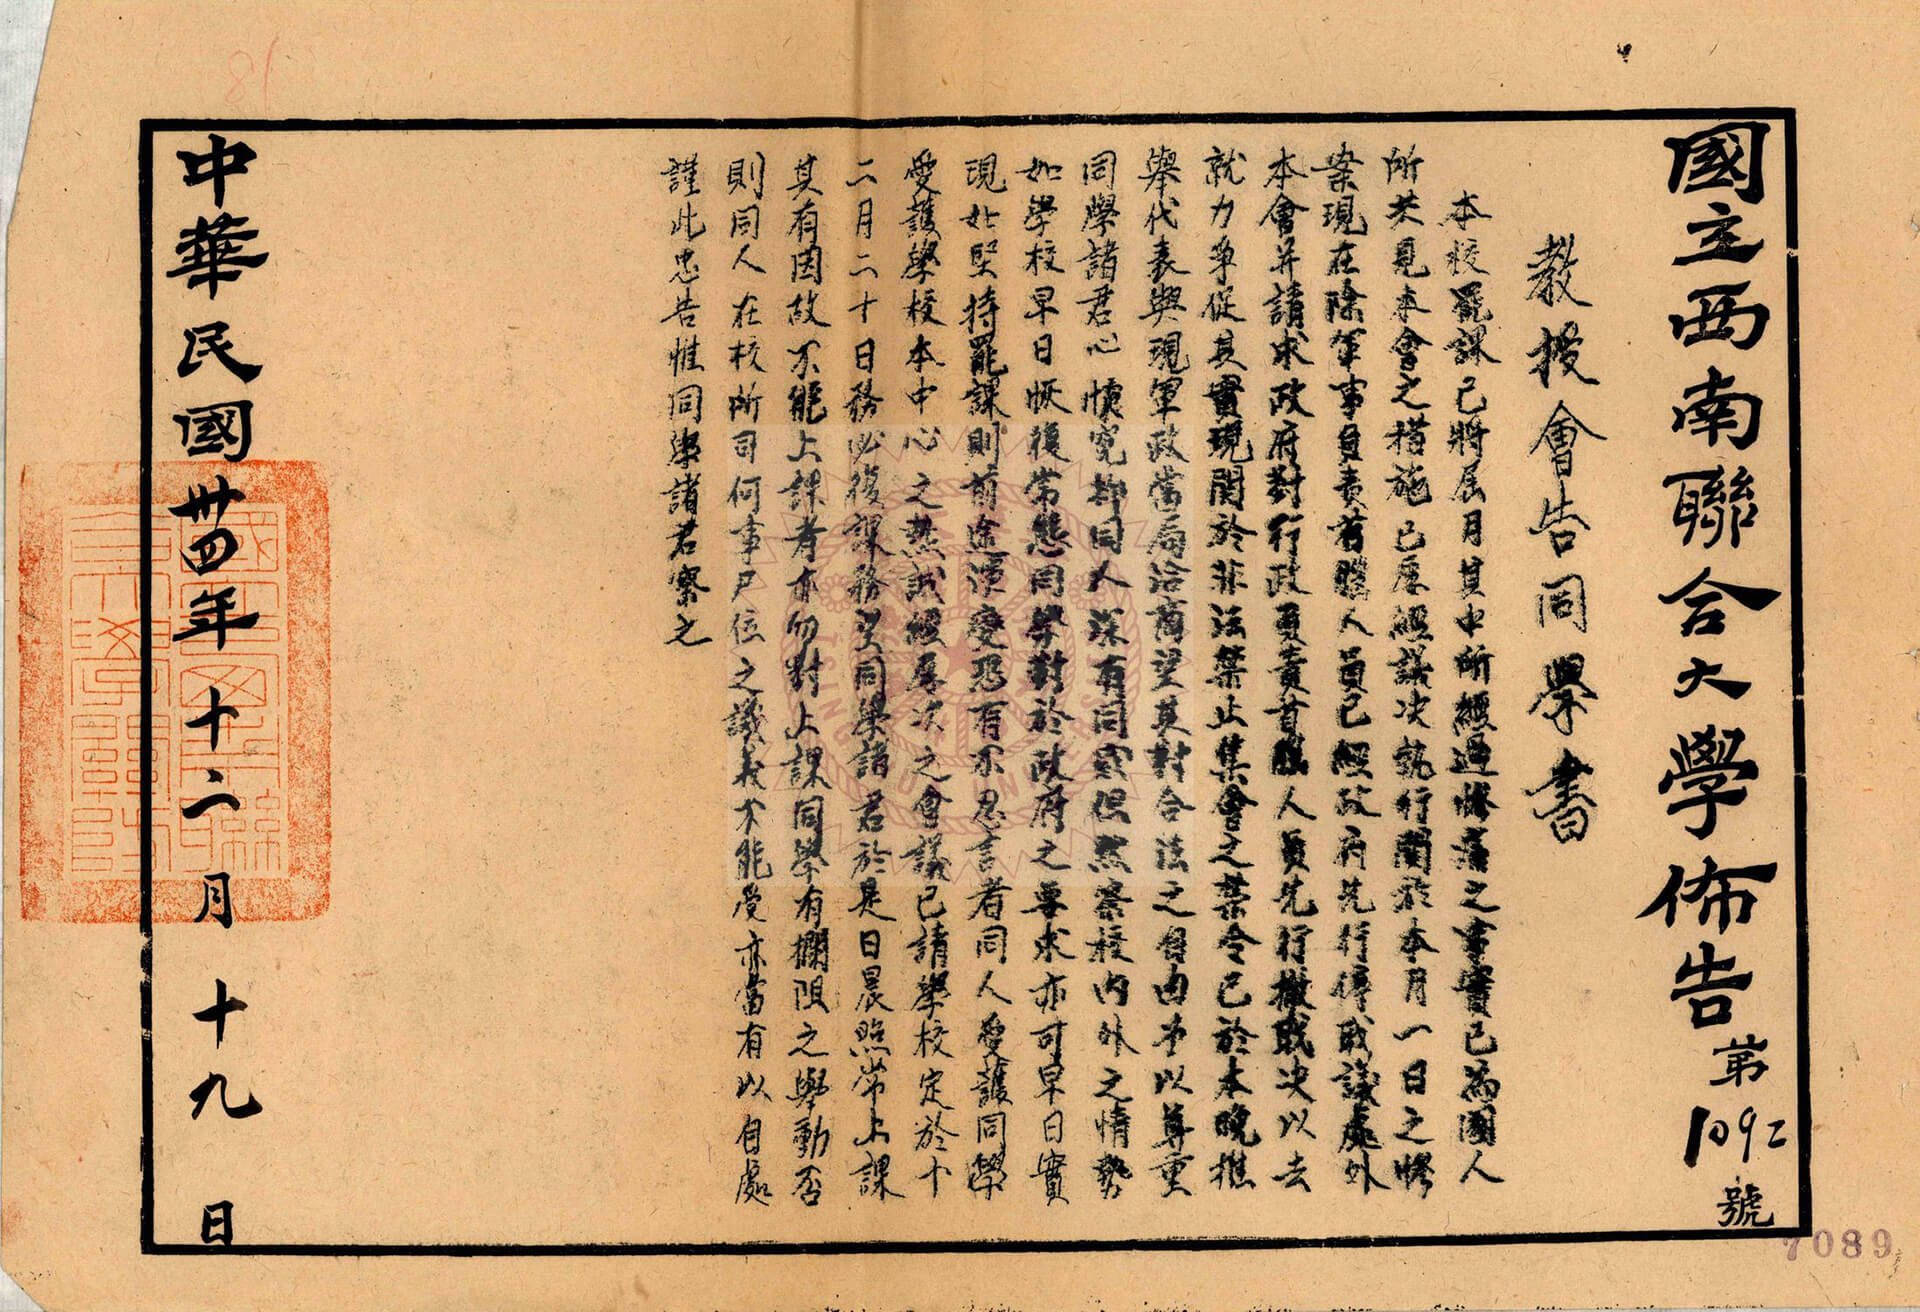 國立西南聯合大學佈告 第1092號
教授會告同學書
本校罷課已將屆月其中所經過慘痛之事實已為國人
所共見本會之措施已屢經議決執行關於本月一日之慘
案現在除軍事負責首腦人員已經政府先行停職議處外
本會并請求政府對行政負責首腦人員先行撤職決以去
就力爭促其實現關於非法禁止集會之禁令已於本晚推
舉代表與現軍政當局洽商望其對合法之自由予以尊重
同學諸君心懷冤抑同人深有同感但默察校內外之情勢
如學校早日恢復常態同學對於政府之要求亦可早日實
現如堅持罷課則前途演變恐有不忍言者同人愛護同學
愛護學校本中心之熱誠經屢次之會議已請學校定於十
二月二十日務必復課務望同學諸君於是日晨照常上課
其有因故不能上課者亦勿對上課同學有攔阻之舉動否
則同人在校所司何事尸位之譏義不能受亦當有以自處
謹此忠告惟同學諸君察之
中華民國卅四年十二月十九日
7089